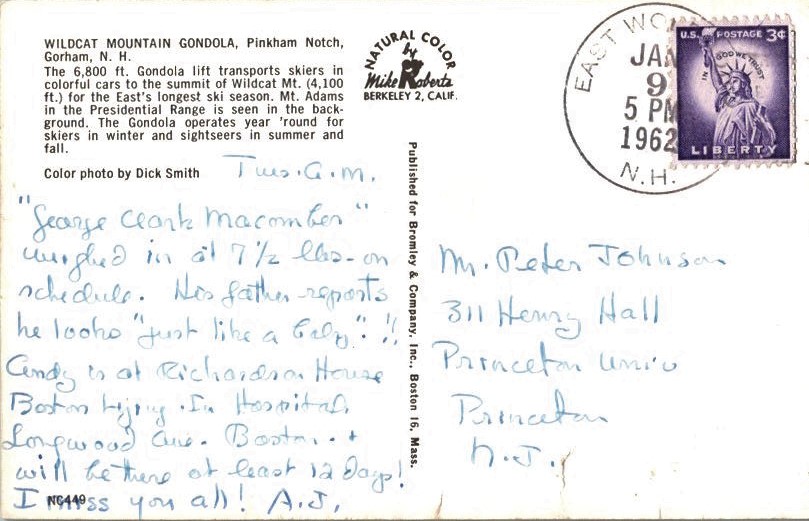 WILDCAT MOUNTAIN GONDOLA, Pinkham Notch,
Gorham, N. H.
The 6,800 ft. Gondola lift transports skiers in
colorful cars to the summit of Wildcat Mt. (4,100
ft.) for the East's longest ski season. Mt. Adams
in the Presidential Range is seen in the back-
ground. The Gondola operates year 'round for
skiers in winter and sightseers in summer and
fall.
Color photo by Dick Smith
Tues. A.M.
"George Clark Macomber"
weighed in at 7 1/2 lbs - on
schedule. His father reports
he looks "just like a baby"!!
Andy is at Richardson House
Boston Lying-In Hospital,
Longwood Ave. Boston. +
will be there at least 12 days!
I miss you all! A.J.
NC449
NATURAL COLOR
by
Mike Roberts
BERKELEY 2, CALIF.
Published for Bromley & Company, Inc., Boston 16, Mass.
EAST WO
JAN
9
5 PM
1962
N.H.
U.S. POSTAGE 3¢
IN GOD WE TRUST
LIBERTY
Mr. Peter Johnson
311 Henry Hall
Princeton Univ
Princeton
N.J.